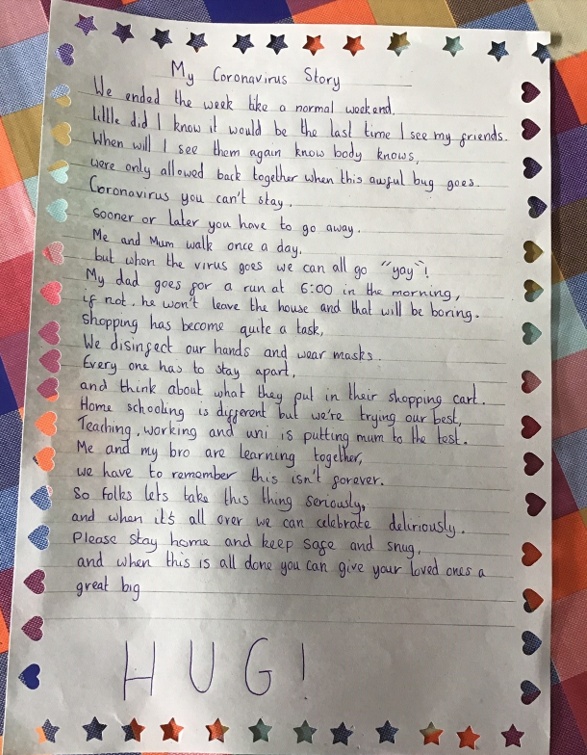 My Coronavirus Story
We ended the week like a normal weekend.
little did I know it would be the last time I see my friends.
When will I see them again know body knows,
were only allowed back together when this awful bug goes.
Coronavirus you can't stay.
sooner or later you have to go away.
Me and Mum walk once a day,
but when the virus goes we can all go "yay"!
My dad goes for a run at 6:00 in the morning,
if not, he won't leave the house and that will be boring.
Shopping has become quite a task,
We disinfect our hands and wear masks.
Every one has to stay apart,
and think about what they put in their shopping cart.
Home schooling is different but we're trying our best,
Teaching, working and uni is putting mum to the test.
Me and my bro are learning together,
we have to remember this isn't forever.
So folks lets take this thing seriously,
and when it's all over we can celebrate deliriously.
Please stay home and keep safe and snug,
and when this is all done you can give your loved ones a
great big
HUG!